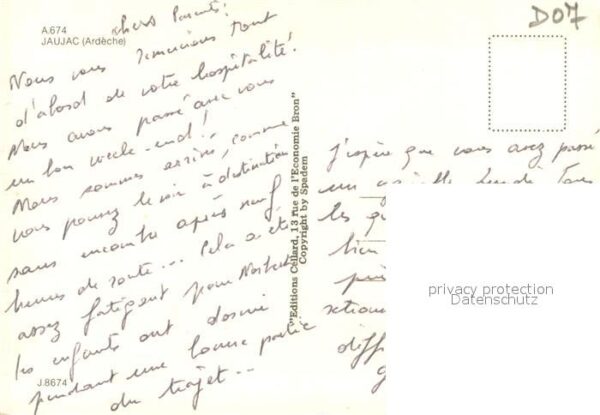 A.674
JAUJAC (Ardèche)
D07
chers Parents!
Nous vous remercions tout
d'abord de votre hospitalité!
Nous avons passé avec vous
un bon week-end!
Nous sommes arrivés, comme
vous pouvez le voir à destination
sans encombre après neuf
heures de route... Cela a été
assez fatigant pour Norbert
les enfants ont dormi
pendant une bonne partie
du trajet...
J.8674
"Editions Cellard, 13 rue de l'Economie Bron"
Copyright by Spadem
j'espère que vous avez passé
un
les
bien
diff
privacy protection
Datenschutz